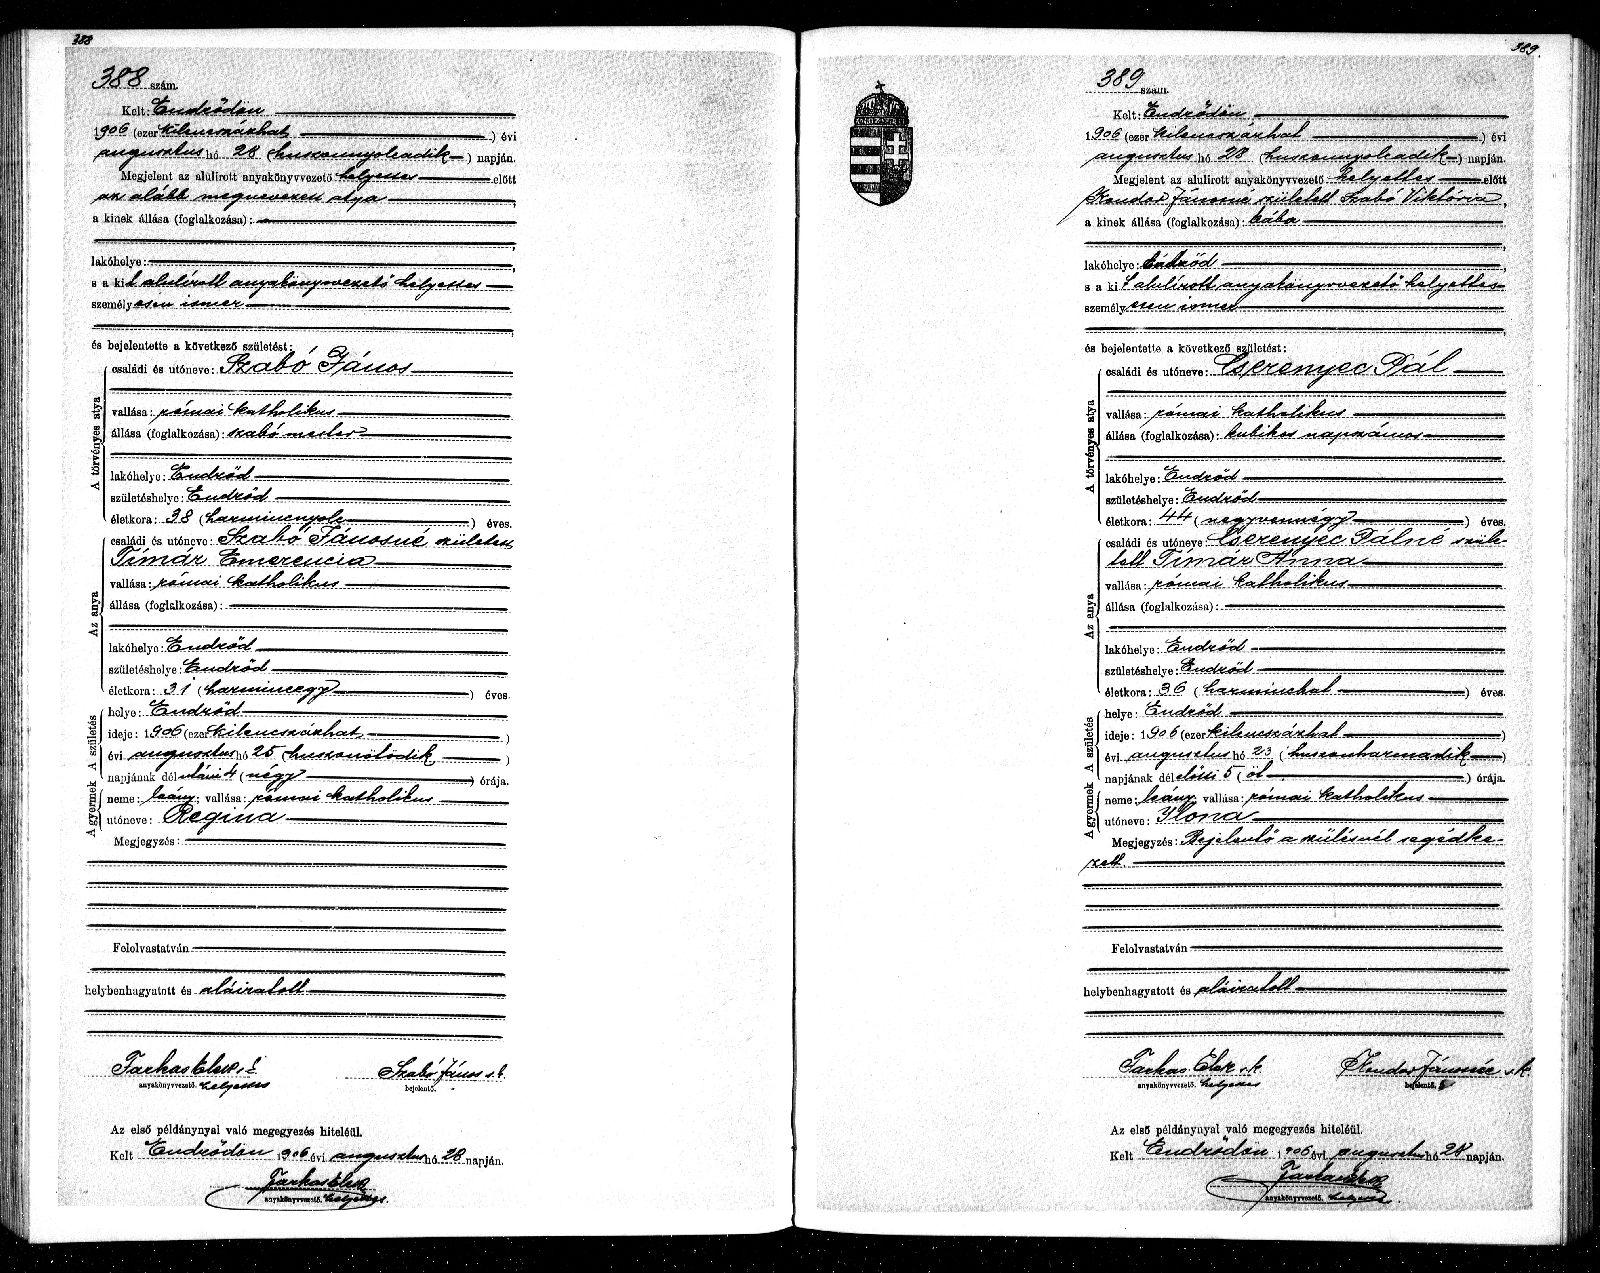 388
388 szám.
Kelt: Endrődön
1906 (ezer kilencszázhat) évi
augusztus hó 28 (huszonnyolcadik) napján.
Megjelent az alulirott anyakönyvvezető helyettes előtt
az alább megnevezett atya
a kinek állása (foglalkozása):
lakóhelye:
s a kit alulírott anyakönyvvezető helyettes
személyesen ismer
és bejelentette a következő születést:
A törvényes atya
családi és utóneve: Szabó János
vallása: római katholikus
állása (foglalkozása): szabó mester
lakóhelye: Endrőd
születéshelye: Endrőd
életkora: 38 (harmincnyolc) éves.
Az anya
családi és utóneve: Szabó Jánosné született
Tímár Emerencia
vallása: római katholikus
állása (foglalkozása):
lakóhelye: Endrőd
születéshelye: Endrőd
életkora: 31 (harmincegy) éves.
A születés
helye: Endrőd
ideje: 1906 (ezer kilencszázhat)
évi augusztus hó 25 (huszonötödik)
napjának délutáni 4 (négy) órája.
A gyermek
neme: leány; vallása: római katholikus
utóneve: Regina
Megjegyzés:
Felolvastatván
helybenhagyatott és aláíratott
Farkas Elek s.k. Szabó János s.k.
anyakönyvvezető. helyettes bejelentő.
Az első példánynyal való megegyezés hiteléül.
Kelt Endrődön 1906 évi augusztus hó 28 napján.
Farkas Elek
anyakönyvvezető. helyettes.
389.
389 szám.
Kelt: Endrődön
1906 (ezer kilencszázhat) évi
augusztus hó 28 (huszonnyolcadik) napján.
Megjelent az alulirott anyakönyvvezető helyettes előtt
Kondor Jánosné született Szabó Viktória,
a kinek állása (foglalkozása): bába
lakóhelye: Endrőd
s a kit alulírott anyakönyvvezető helyettes
személyesen ismer
és bejelentette a következő születést:
A törvényes atya
családi és utóneve: Cserenyec Pál
vallása: római katholikus
állása (foglalkozása): kubikos napszámos
lakóhelye: Endrőd
születéshelye: Endrőd
életkora: 44 (negyvennégy) éves.
Az anya
családi és utóneve: Cserenyec Pálné szüle-
tett Tímár Anna
vallása: római katholikus
állása (foglalkozása):
lakóhelye: Endrőd
születéshelye: Endrőd
életkora: 36 (harminchat) éves.
A születés
helye: Endrőd
ideje: 1906 (ezer kilencszázhat)
évi augusztus hó 23 (huszonharmadik)
napjának délelőtti 5 (öt) órája.
A gyermek
neme: leány vallása: római katholikus
utóneve: Ilona
Megjegyzés: Bejelentő a szülésnél segédke-
zett.
Felolvastatván
helybenhagyatott és aláíratott
Farkas Elek s.k. Kondor Jánosné s.k.
anyakönyvvezető. helyettes bejelentő.
Az első példánynyal való megegyezés hiteléül.
Kelt Endrődön 1906 évi augusztus hó 28 napján.
Farkas Elek
anyakönyvvezető. helyettes.